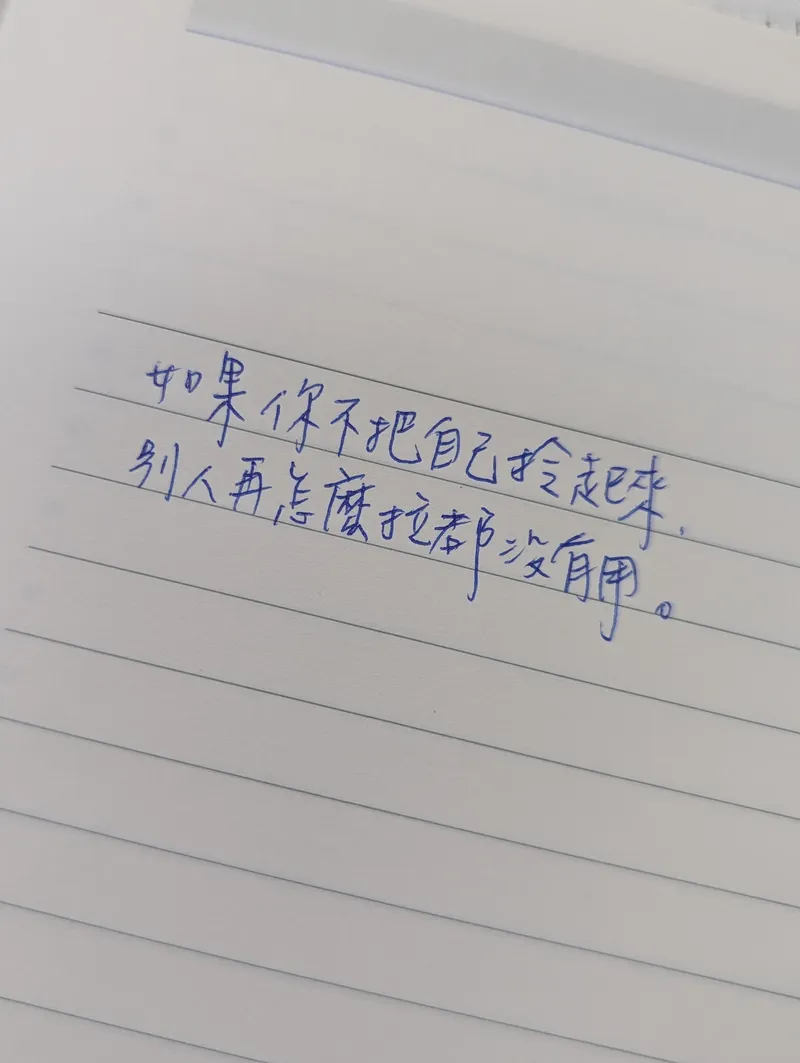 如果你不把自己拎起來,
別人再怎麼拉都沒有用。